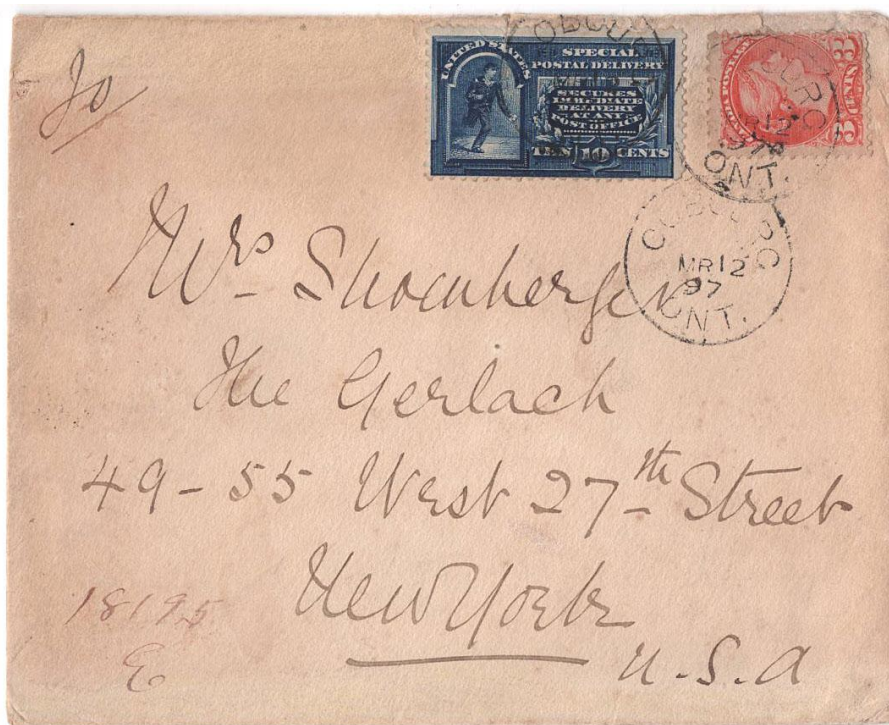 To
UNITED STATES
SPECIAL
POSTAL DELIVERY
SECURES
IMMEDIATE
DELIVERY
AT ANY
POST OFFICE
TEN 10 CENTS
POSTAGE
3 CENTS 3
COBOURG
MR 12
97
ONT.
COBOURG
MR 12
97
ONT.
Mrs. Shoenberger
The Gerlach
49-55 West 27th Street
New York
U.S.A
18195
E